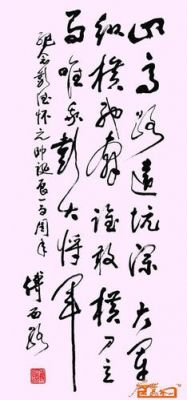 山高路遠坑深大軍
纵横馳奔誰敢横刀立
马唯我彭大将軍
纪念彭德怀元帅诞辰一百周年
傅西路